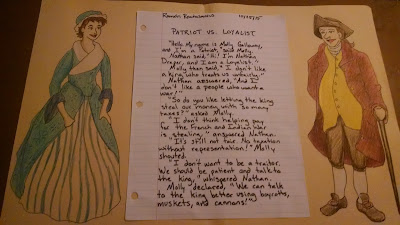 PATRIOT VS. LOYALIST
"Hello. My name is Molly Galloway,
and I'm a Patriot," said Molly.
Nathan said, "Hi! I'm Nathan
Draper, and I am a Loyalist."
Molly then said, "I don't like
a King who treats us unfairly."
Nathan answered, "And I
don't like a people who want a
war!"
"So do you like letting the king
steal our money with so many
taxes?" asked Molly.
"I don't think helping pay
for the French and Indian War
is stealing," answered Nathan.
"It's still not fair. No taxation
without representation!" Molly
shouted.
"I don't want to be a traitor.
We should be patient and talk to
the king," whispered Nathan.
Molly declared, "We can talk
to the king better using boycotts,
muskets, and cannons!"